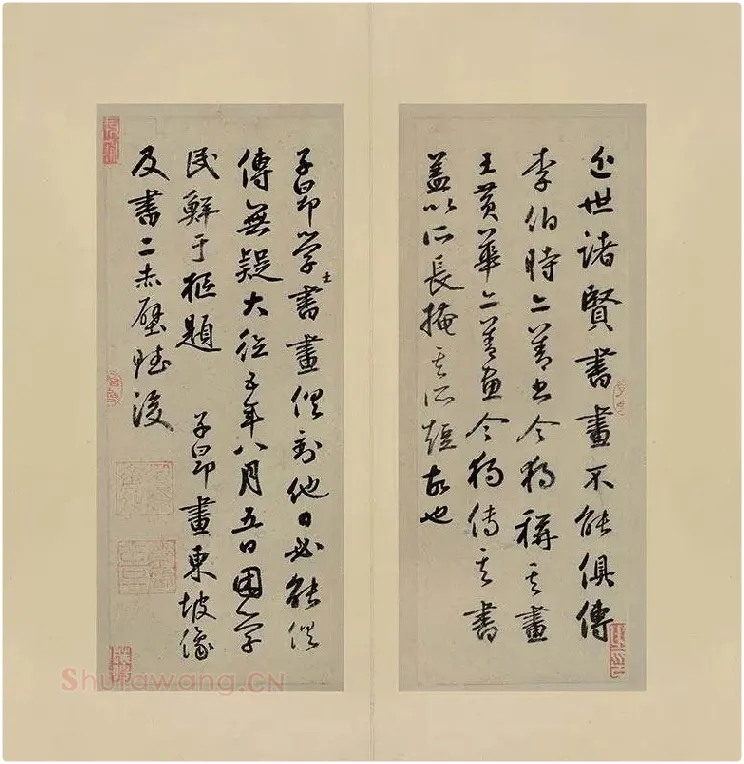 近世諸賢書畫不能俱傳
李伯時亦善書今獨稱其畫
王黃華亦善畫今獨傳其書
蓋以所長掩其所短故也
子昂學士書畫俱到他日必能俱
傳無疑大德五年八月五日困學
民鮮于樞題 子昂畫東坡像
及書二赤壁賦後
Shufawang.CN